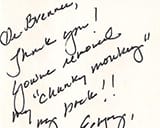 Dr Brenner,
Thank you!
You've removed
my "chunky monkey"
my back!!